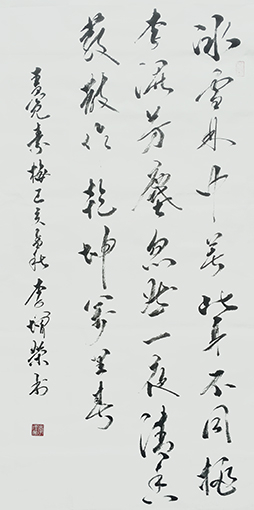 冰雪林中著此身不同桃
李混芳塵忽然一夜清香
發散作乾坤萬里春
王冕素梅己亥春秋李增荣书